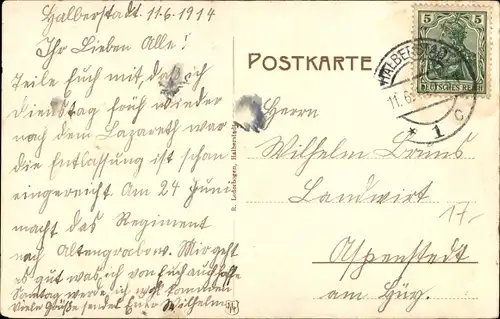 Halberstadt. 11.6.1914
Ihr Lieben Alle!
Teile Euch mit, daß ich
Dienstag früh wieder
nach dem Lazareth war
die Entlassung ist schon
eingereicht Am 24 Juni
macht das Regiment
nach Altengrabow. Mir geht
es gut was ich von Euch auch hoffe
Sonntag werde ich wohl kommen
Viele Grüße sendet Euer Wilhelm
R. Lederbogen, Halberstadt.
POSTKARTE
Herrn
Wilhelm
Landwirt
Aspenstedt
am Huy.
17.-
5 5
DEUTSCHES REICH
HALBERSTADT
11.6.
* 1 c